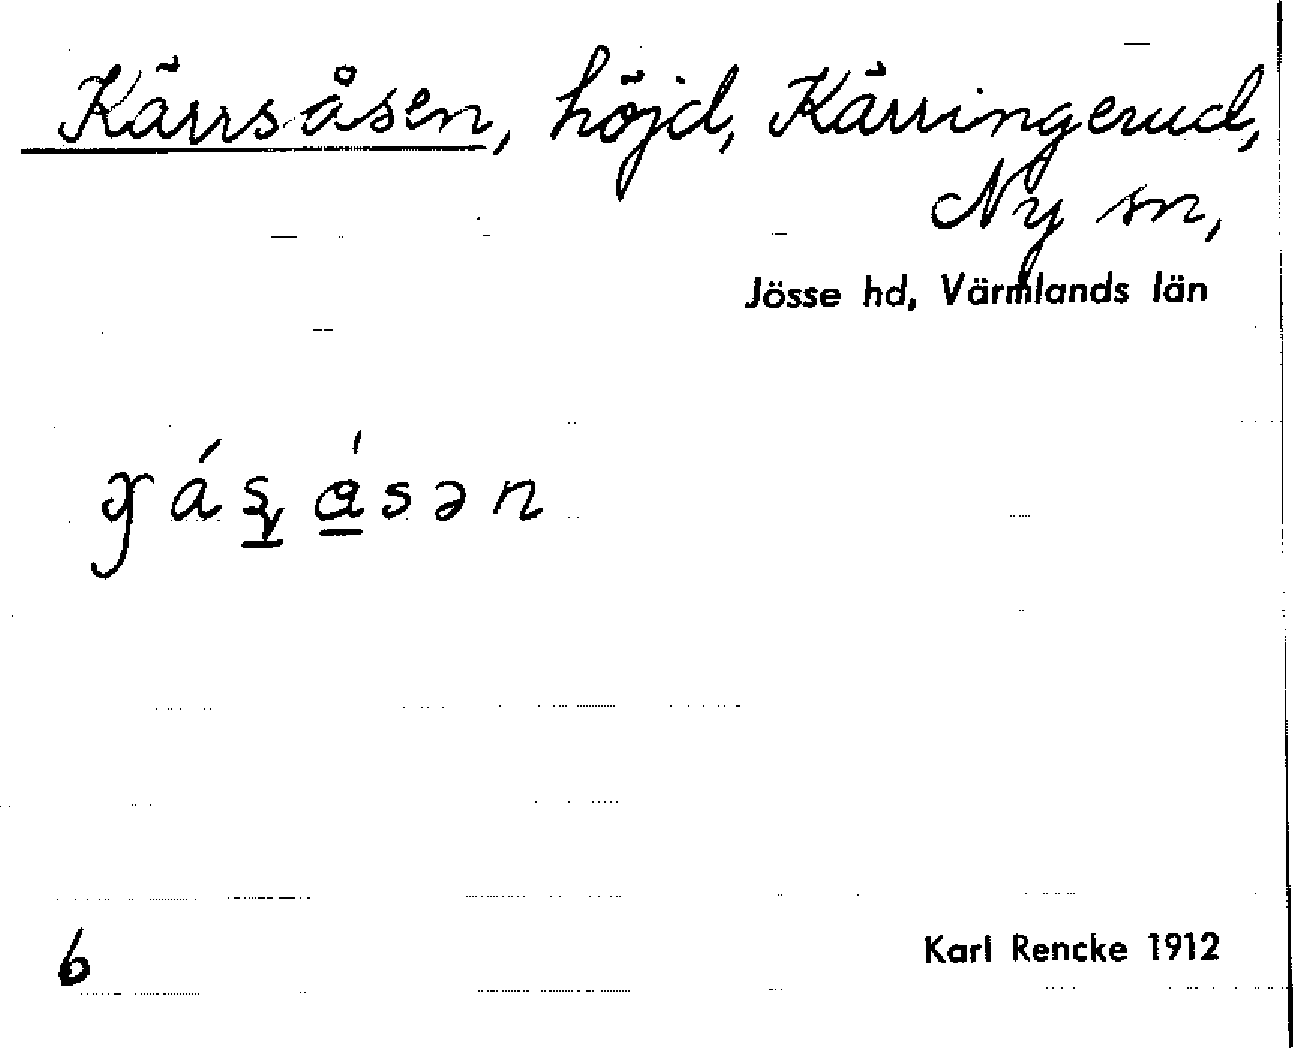 Kärrsåsen, höjd, Käringerud,
Ny sn,
Jösse hd, Värmlands län
6
Karl Rencke 1912